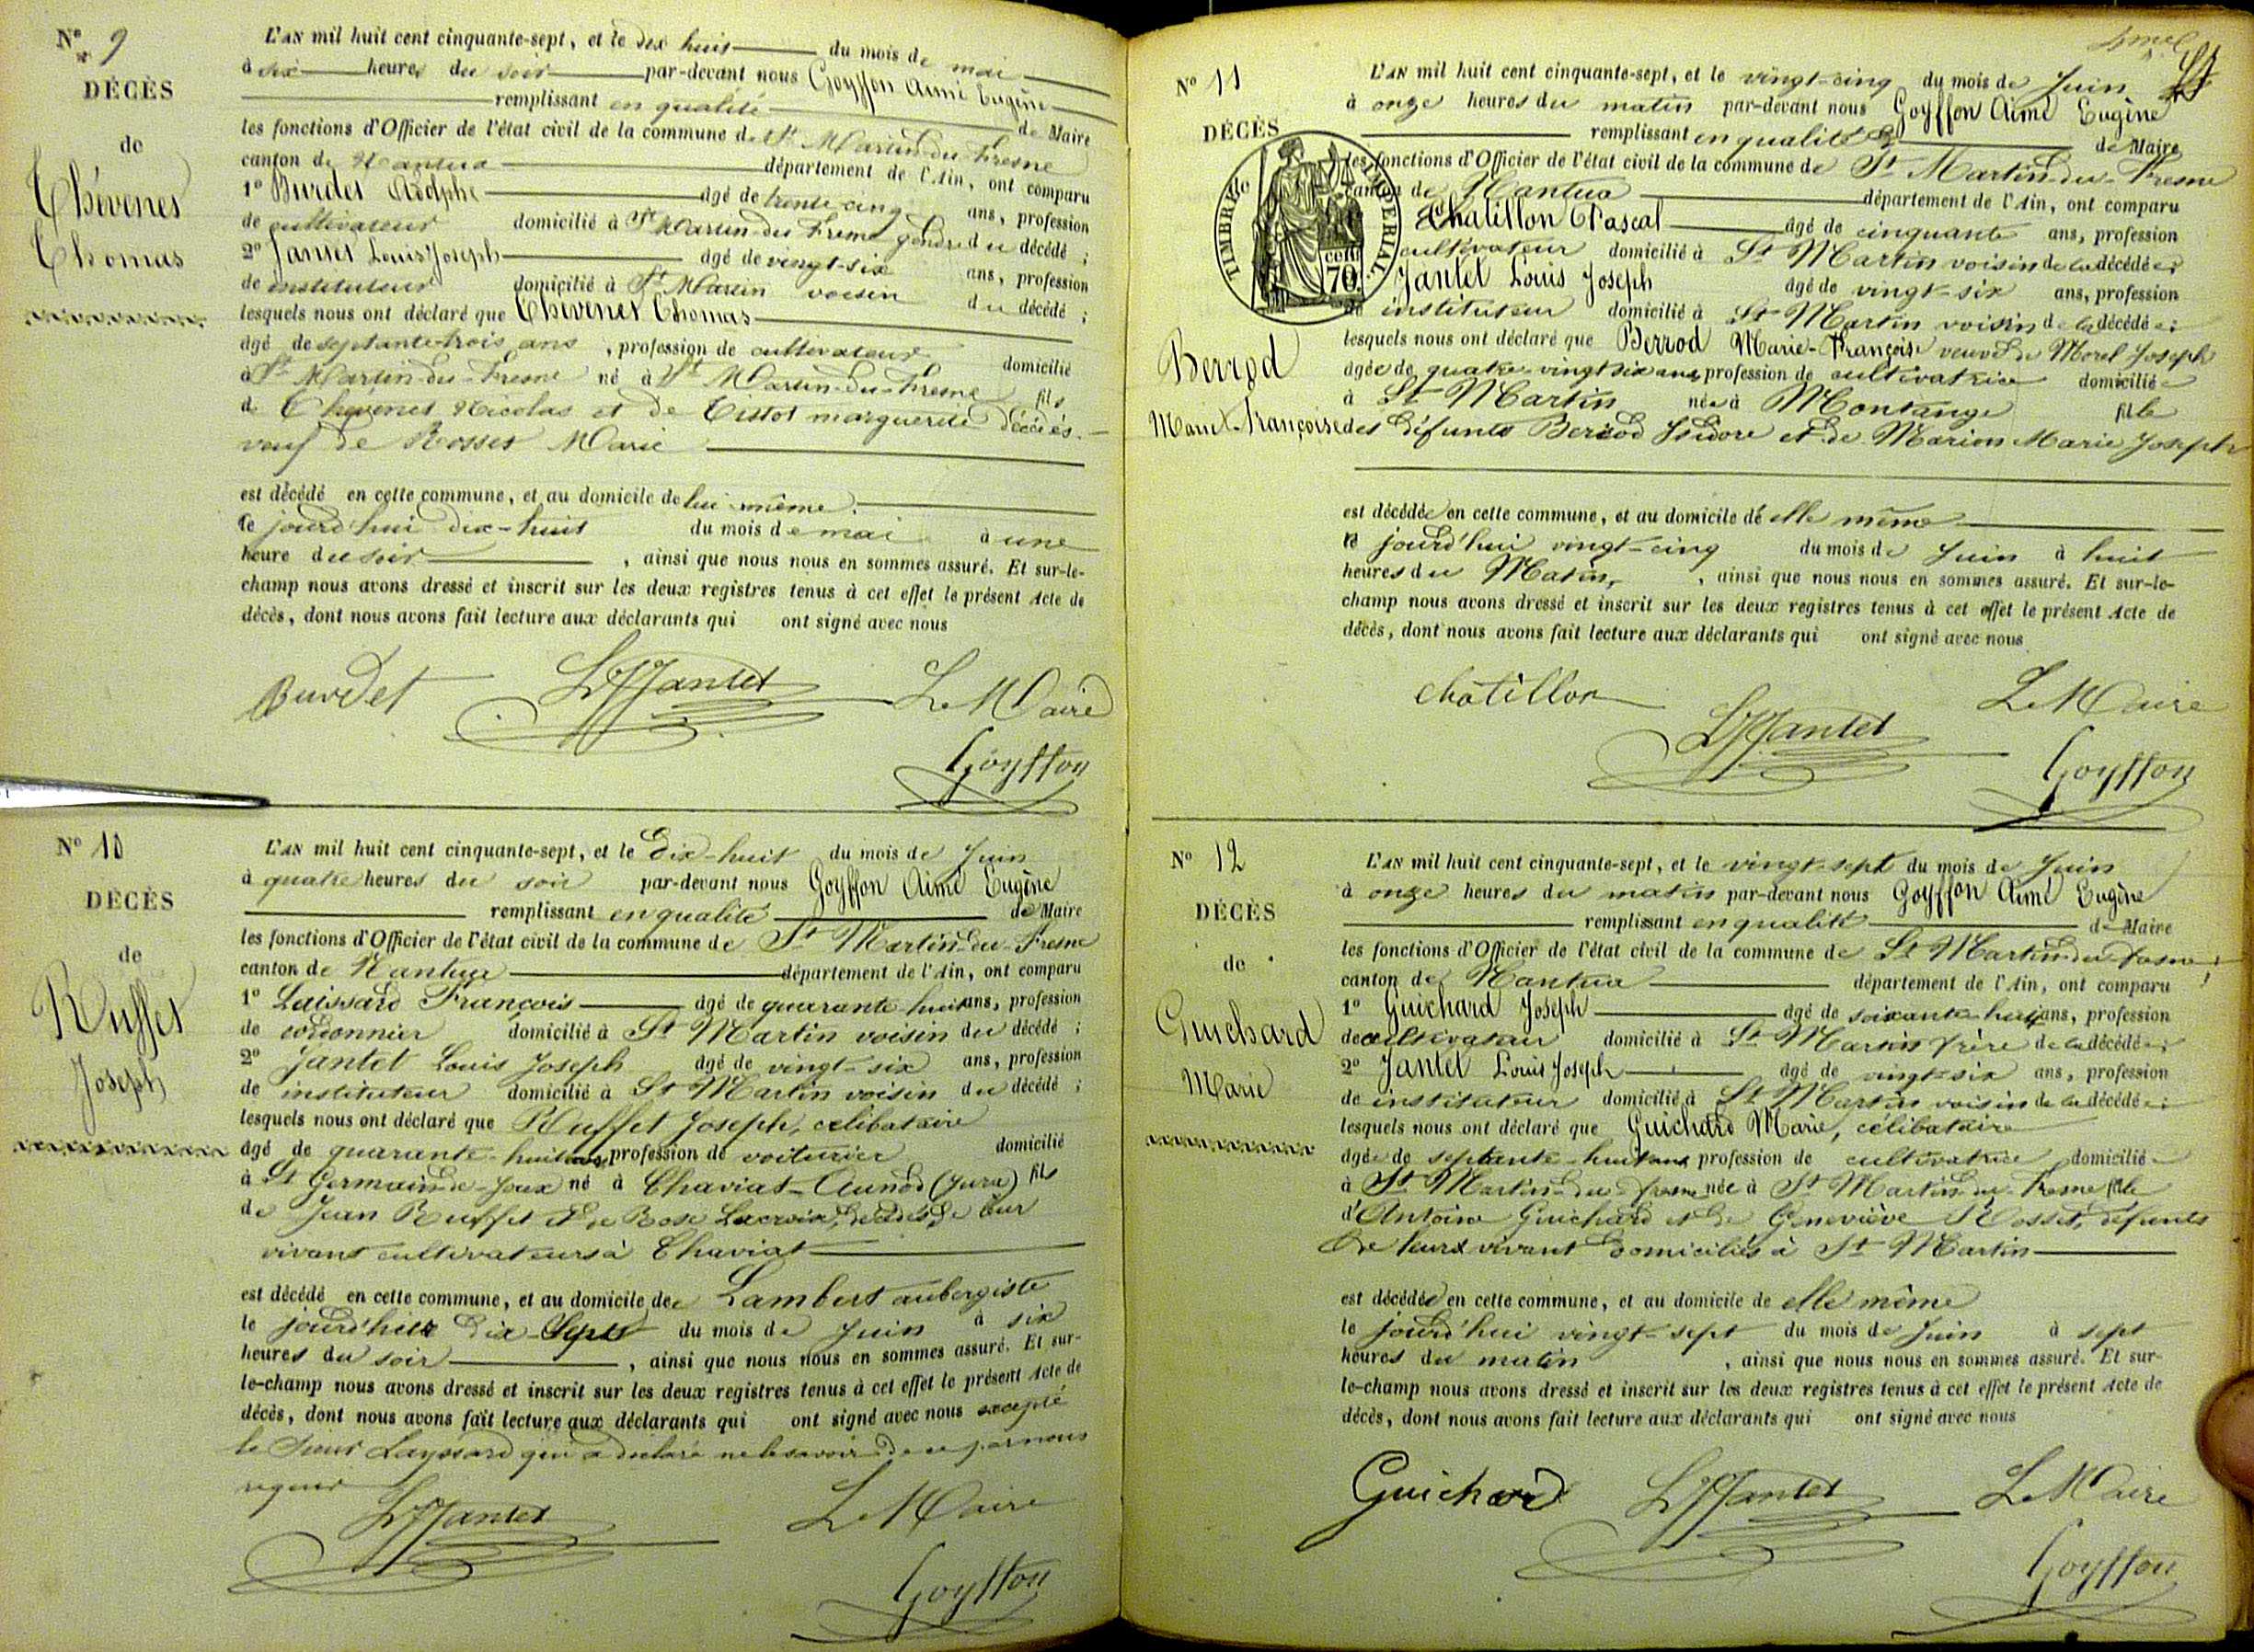 N° 9
DÉCÈS
de
Thévenet
Thomas
L'AN mil huit cent cinquante-sept, et le dix huit du mois de mai
à six heures du soir par-devant nous Goyffon Aimé Eugène
remplissant en qualité de Maire
les fonctions d'Officier de l'état civil de la commune de St Martin-du-Fresne
canton de Nantua département de l'Ain, ont comparu
1° Burdet Adolphe âgé de trente cinq ans, profession
de cultivateur domicilié à St Martin-du Fresne gendre du décédé ;
2° Jantet Louis Joseph âgé de vingt-six ans, profession
de instituteur domicilié à St Martin voisin du décédé ;
lesquels nous ont déclaré que Thévenet Thomas
âgé de septante-trois ans, profession de cultivateur domicilié
à St Martin-du-Fresne né à St Martin-du-Fresne fils
de Thévenet Nicolas et de Tissot marguerite décédés.
veuf de Rosset Marie
est décédé en cette commune, et au domicile de lui-même.
le jourd'hui dix-huit du mois de mai à une
heure du soir, ainsi que nous nous en sommes assuré. Et sur-le-
champ nous avons dressé et inscrit sur les deux registres tenus à cet effet le présent Acte de
décès, dont nous avons fait lecture aux déclarants qui ont signé avec nous
Burdet LJJantet Le Maire
Goyffon
N° 10
DÉCÈS
de
Ruffet
Joseph
L'AN mil huit cent cinquante-sept, et le dix-huit du mois de Juin
à quatre heures du soir par-devant nous Goyffon Aimé Eugène
remplissant en qualité de Maire
les fonctions d'Officier de l'état civil de la commune de St Martin-du-Fresne
canton de Nantua département de l'Ain, ont comparu
1° Laissard François âgé de quarante-huit ans, profession
de cordonnier domicilié à St Martin voisin du décédé ;
2° Jantet Louis Joseph âgé de vingt-six ans, profession
de instituteur domicilié à St Martin voisin du décédé ;
lesquels nous ont déclaré que Ruffet Joseph, célibataire
âgé de quarante-huit ans, profession de voiturier domicilié
à St Germain-de-Joux né à Chaviat-Aunod (Jura) fils
de Jean Ruffet et de Rose Lacroix, décédés, de leur
vivant cultivateurs à Chaviat
est décédé en cette commune, et au domicile de Lambert aubergiste
le jourd'hui dix-Sept du mois de Juin à six
heures du soir, ainsi que nous nous en sommes assuré. Et sur-
le-champ nous avons dressé et inscrit sur les deux registres tenus à cet effet le présent Acte de
décès, dont nous avons fait lecture aux déclarants qui ont signé avec nous excepté
le sieur Layssard qui a déclaré ne le savoir de ce par nous
requis
LJJantet Le Maire
Goyffon
N° 11
DÉCÈS
TIMBRE IMPÉRIAL
cent 70
Berrod
Marie-Françoise
L'AN mil huit cent cinquante-sept, et le vingt-cinq du mois de Juin
à onze heures du matin par-devant nous Goyffon Aimé Eugène
remplissant en qualité de Maire
les fonctions d'Officier de l'état civil de la commune de St Martin-du-Fresne
canton de Nantua département de l'Ain, ont comparu
Chatillon Pascal âgé de cinquante ans, profession
cultivateur domicilié à St Martin voisin de la décédée ;
Jantet Louis Joseph âgé de vingt-six ans, profession
de instituteur domicilié à St Martin voisin de la décédée ;
lesquels nous ont déclaré que Berrod Marie-Françoise veuve de Morel Joseph
âgée de quatre-vingt six ans, profession de cultivatrice domiciliée
à St Martin née à Montange fille
des défunts Berrod Isidore et de Marion Marie Joseph
est décédée en cette commune, et au domicile de elle même
le jourd'hui vingt-cinq du mois de Juin à huit
heures du Matin, ainsi que nous nous en sommes assuré. Et sur-le-
champ nous avons dressé et inscrit sur les deux registres tenus à cet effet le présent Acte de
décès, dont nous avons fait lecture aux déclarants qui ont signé avec nous
Châtillon LJJantet Le Maire
Goyffon
N° 12
DÉCÈS
de
Guichard
Marie
L'AN mil huit cent cinquante-sept, et le vingt-sept du mois de Juin
à onze heures du matin par-devant nous Goyffon Aimé Eugène
remplissant en qualité de Maire
les fonctions d'Officier de l'état civil de la commune de St Martin-du-fresne
canton de Nantua département de l'Ain, ont comparu
1° Guichard Joseph âgé de soixante-huit ans, profession
de cultivateur domicilié à St Martin frère de la décédée ;
2° Jantet Louis Joseph âgé de vingt-six ans, profession
de instituteur domicilié à St Martin voisin de la décédée ;
lesquels nous ont déclaré que Guichard Marie, célibataire
âgée de septante-huit ans profession de cultivatrice domiciliée
à St Martin-du-fresne née à St Martin-du-Fresne fille
d'Antoine Guichard et de Geneviève Rosset, défunts
de leurs vivant domiciliés à St Martin
est décédée en cette commune, et au domicile de elle même
le jourd'hui vingt-sept du mois de Juin à sept
heures du matin, ainsi que nous nous en sommes assuré. Et sur-
le-champ nous avons dressé et inscrit sur les deux registres tenus à cet effet le présent Acte de
décès, dont nous avons fait lecture aux déclarants qui ont signé avec nous
Guichard LJJantet Le Maire
Goyffon